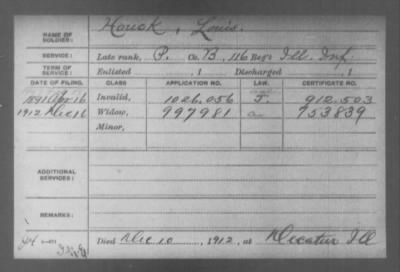 NAME OF SOLDIER: Houck, Louis.
SERVICE: Late rank, P. Co. B, 116 Reg't Ill. Inf.
TERM OF SERVICE: Enlisted , 1 Discharged , 1
DATE OF FILING. CLASS APPLICATION NO. LAW. CERTIFICATE NO.
1891 Apr 16 Invalid, 1026.056 J. 912.503
1912 Dec 16 Widow, 997981 753839
Minor,
ADDITIONAL SERVICES:
REMARKS:
Died Dec 10, 1912, at Decatur Ill